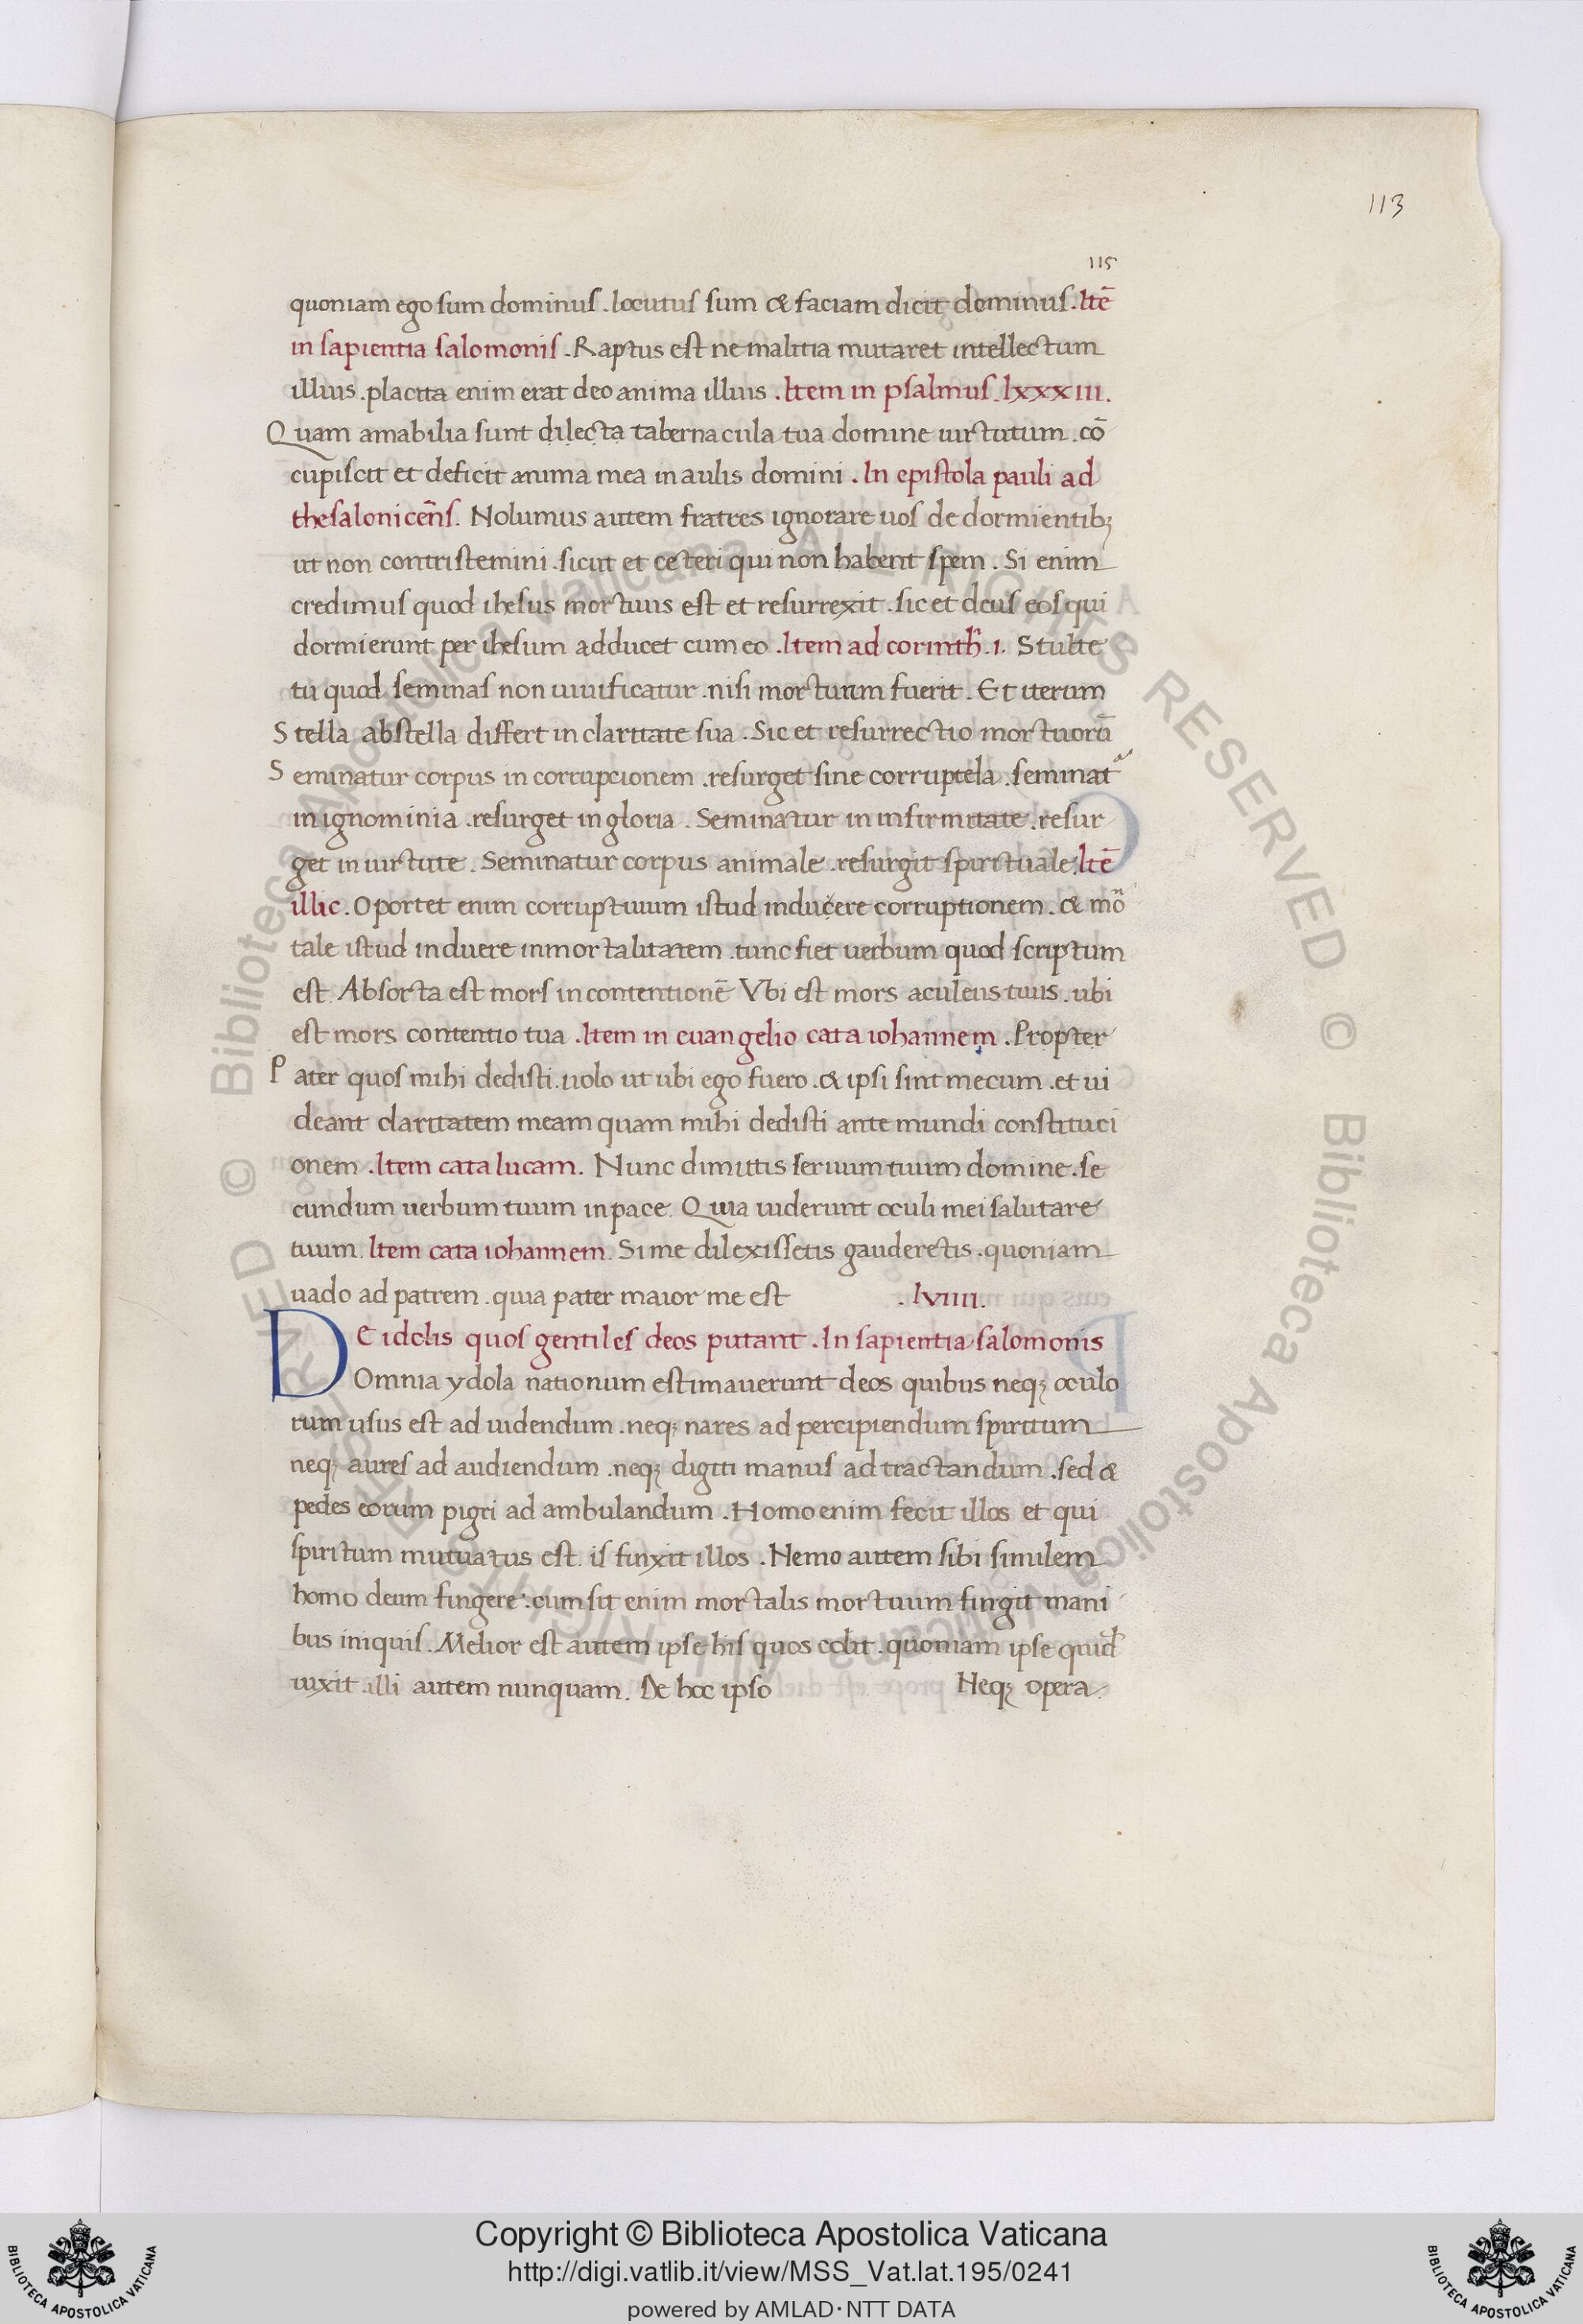 113
115
quoniam ego sum dominus . locutus sum & faciam dicit dominus . Itē
in sapientia salomonis . Raptus est ne malitia mutaret intellectum
illius . placita enim erat deo anima illius . Item in psalmus . lxxxiii .
Quam amabilia sunt dilecta tabernacula tua domine uirtutum . cō
cupiscit et deficit anima mea in aulis domini . In epistola pauli ad
thesalonicēns . Nolumus autem fratres ignorare uos de dormientibꝫ
ut non contristemini . sicut et ceteri qui non habent spem . Si enim
credimus quod ihesus mortuus est et resurrexit . sic et deus eos qui
dormierunt per ihesum adducet cum eo . Item ad corinth . i . Stulte
tu quod seminas non uiuificatur . nisi mortuum fuerit . Et iterum
Stella ab stella differt in claritate sua . Sic et resurrectio mortuorū
Seminatur corpus in corrupcionem . resurget sine corruptela . seminat
in ignominia . resurget in gloria . Seminatur in infirmitate . resur
get in uirtute . Seminatur corpus animale . resurgit spirituale . Itē
illic . Oportet enim corruptiuum istud inducere corruptionem . & mō
tale istud induere inmortalitatem . tunc fiet uerbum quod scriptum
est . Absorta est mors in contentionē Vbi est mors aculeus tuus . ubi
est mors contentio tua . Item in euangelio cata iohannem . Propter
Pater quos mihi dedisti . uolo ut ubi ego fuero . & ipsi sint mecum . et ui
deant claritatem meam quam mihi dedisti ante mundi constituci
onem . Item cata lucam . Nunc dimittis seruum tuum domine . se
cundum uerbum tuum in pace . Quia uiderunt oculi mei salutare
tuum . Item cata iohannem . Si me dilexissetis gauderetis . quoniam
uado ad patrem . quia pater maior me est . lviiii .
DE idolis quos gentiles deos putant . In sapientia salomonis
Omnia ydola nationum estimauerunt deos quibus neqꝫ oculo
rum usus est ad uidendum . neqꝫ nares ad percipiendum spiritum
neqꝫ aures ad audiendum . neqꝫ digiti manus ad tractandum . sed &
pedes eorum pigri ad ambulandum . Homo enim fecit illos et qui
spiritum mutuatus est . is finxit illos . Nemo autem sibi similem
homo deum fingere . cum sit enim mortalis mortuum fingit mani
bus iniquis . Melior est autem ipse his quos colit . quoniam ipse quid
uixit . illi autem nunquam . De hoc ipso Neqꝫ opera
© Biblioteca Apostolica Vaticana ALL RIGHTS RESERVED © Biblioteca Apostolica Vaticana ALL RIGHTS RESERVED
BIBLIOTECA APOSTOLICA VATICANA
Copyright © Biblioteca Apostolica Vaticana
http://digi.vatlib.it/view/MSS_Vat.lat.195/0241
powered by AMLAD·NTT DATA
BIBLIOTECA APOSTOLICA VATICANA